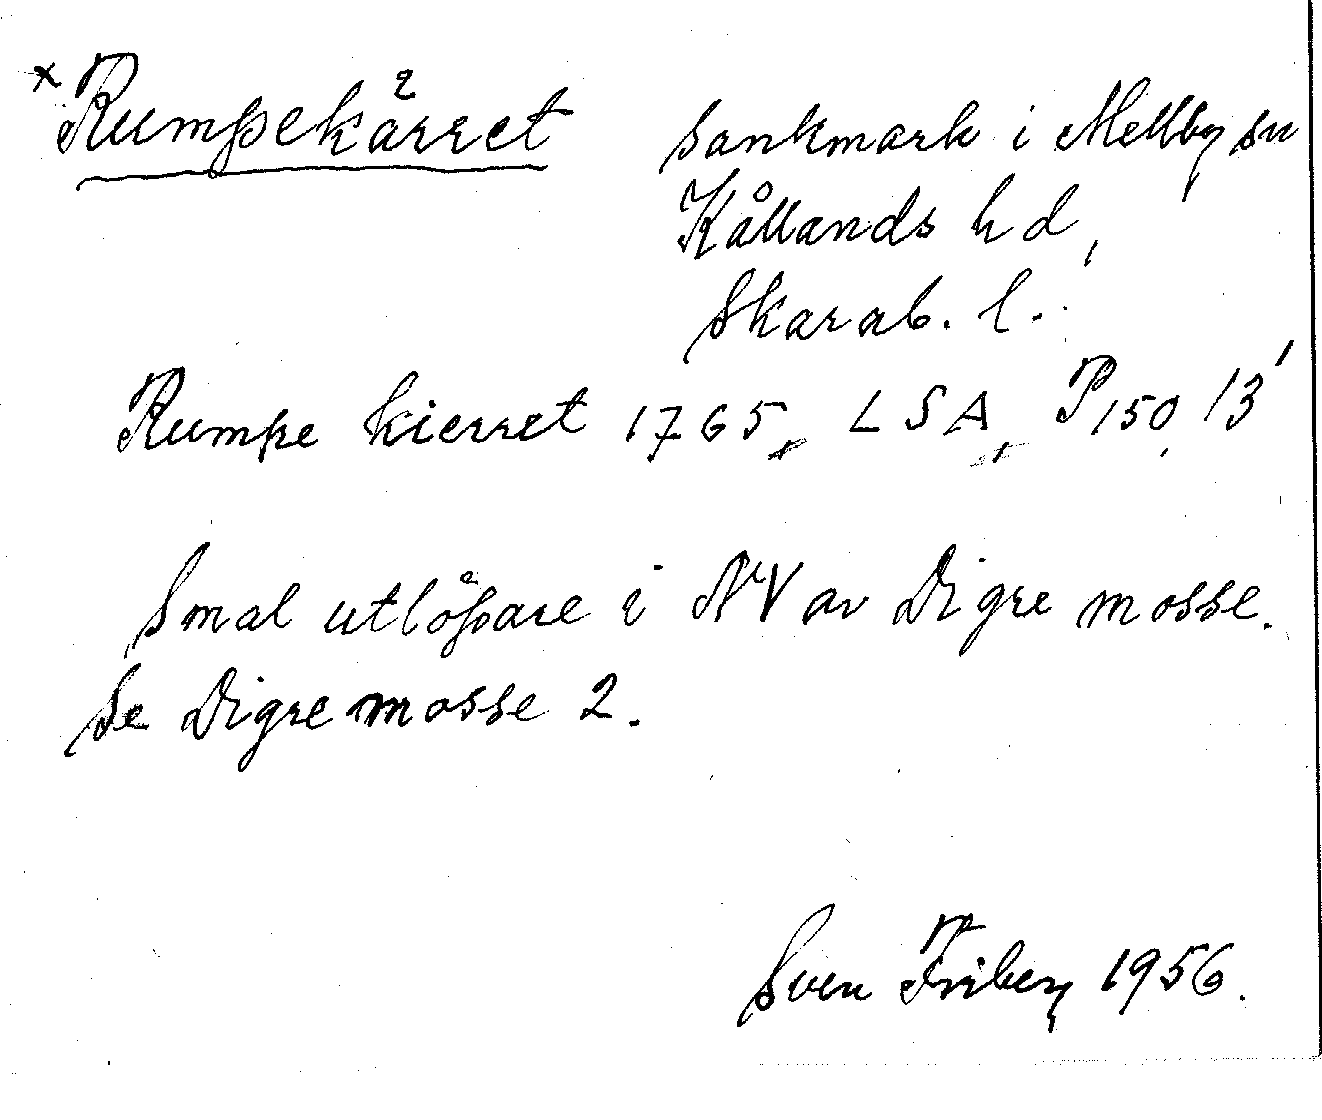 x Rumpekärret sankmark i Mellby sn
Kållands hd,
Skarab. l.
Rumpe kierret 1765, LSA P150, 13'
Smal utlöpare i NV av Digre mosse.
Se Digre mosse 2.
Sven Friberg 1956.